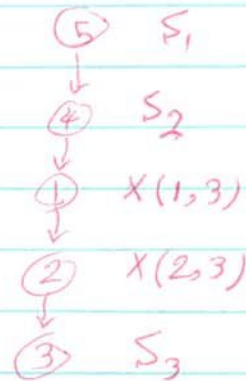 5 S1
4 S2
1 X(1,3)
2 X(2,3)
3 S3